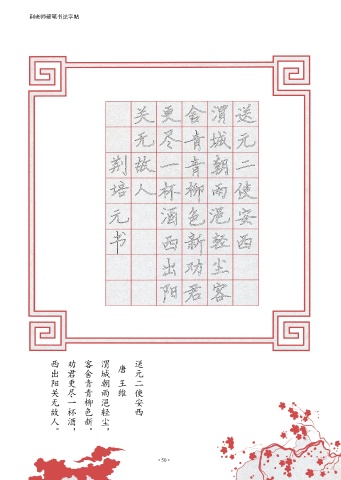 荆老师硬笔书法字帖
送元二使安西
渭城朝雨浥轻尘
客舍青青柳色新
劝君更尽一杯酒
西出阳关无故人
荆培元书
送元二使安西
唐 王维
渭城朝雨浥轻尘，
客舍青青柳色新。
劝君更尽一杯酒，
西出阳关无故人。
·50·